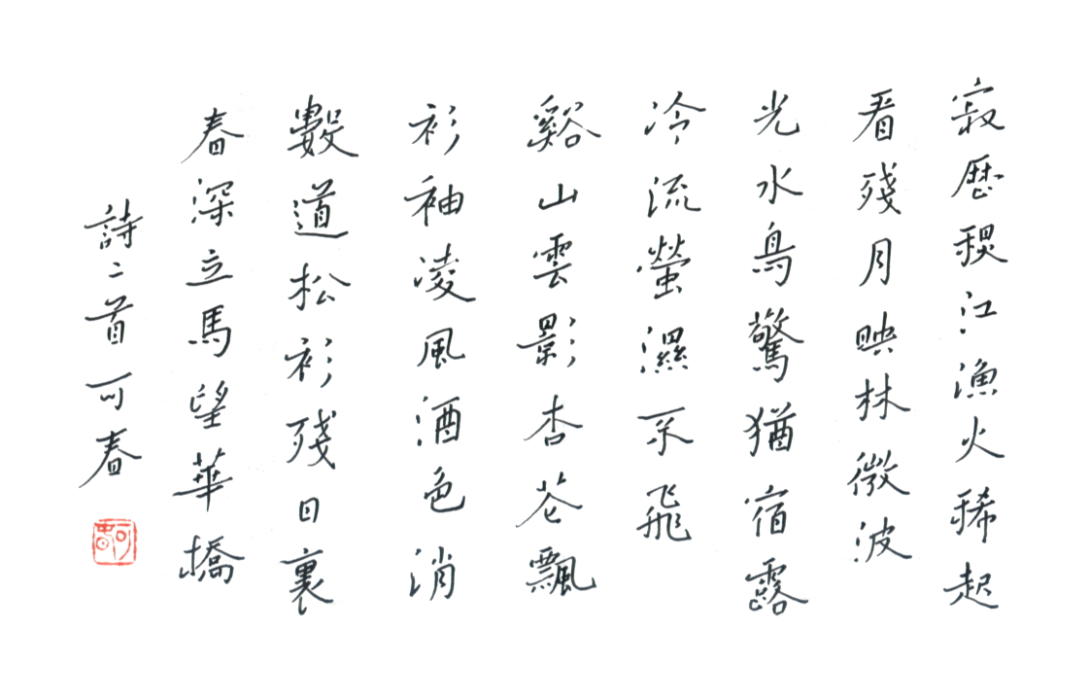 寂歷稷江漁火稀起
看殘月映林微波
光水鳥驚猶宿露
冷流螢濕不飛
谿山雲影杏花飄
衫袖凌風酒色消
數道松衫殘日裏
春深立馬望華橋
詩二首 可春
可春